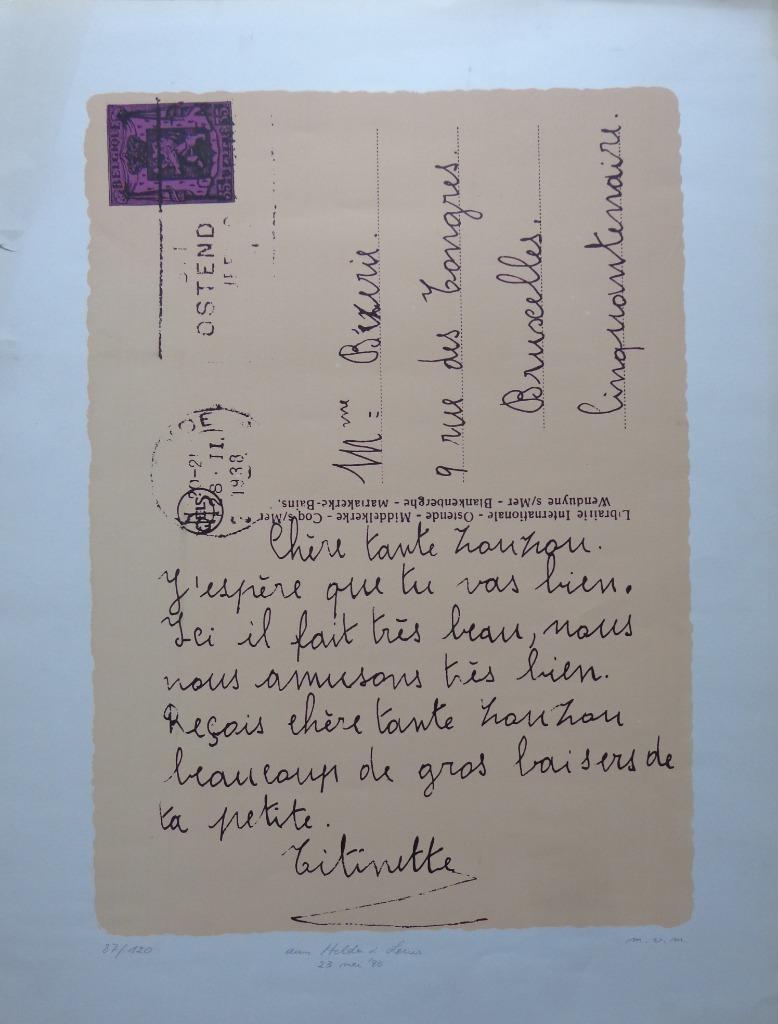 BELGIQUE
OSTEND
20-21
28. II.
1938
Mme Bézerie.
9 rue des Tongres.
Bruxelles.
Cinquantenaire.
Librairie Internationale - Ostende - Middelkerke - Coq s/Mer
Wenduyne s/Mer - Blankenberghe - Mariakerke-Bains.
Chère tante Zouzou.
J'espère que tu vas bien.
Ici il fait très beau, nous
nous amusons très bien.
Reçois chère tante Zouzou
beaucoup de gros baisers de
ta petite.
Titinette
87/120
aan
23 mei
m.v.m.